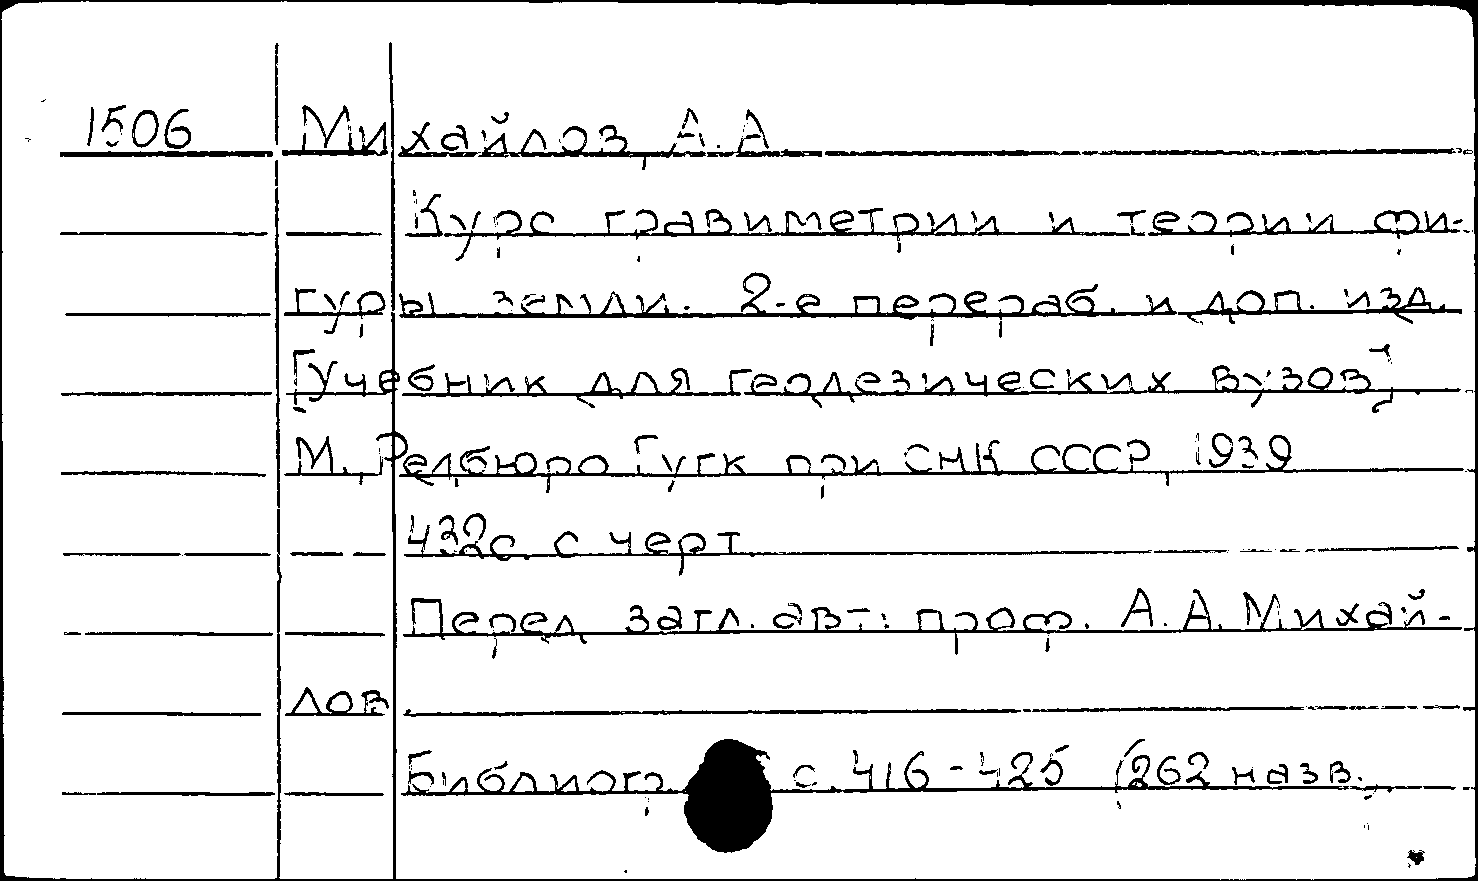 1506 Михайлов, А. А.
Курс гравиметрии и теории фи-
гуры земли. 2-е перераб. и доп. изд.
[Учебник для геодезических вузов].
М., Редбюро Гугк при СНК СССР, 1939
432с. с черт.
Перед загл. авт.: проф. А. А. Михай-
лов.
Библиогр. с. 416-425 (262 назв.